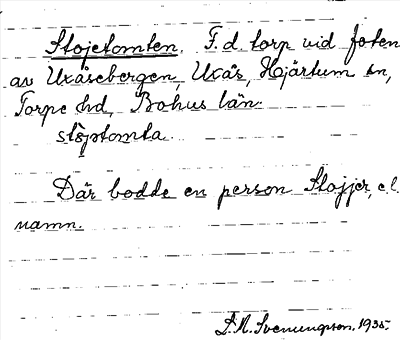 Stojetomten. F.d. torp vid foten
av Uxåsebergen, Uxås, Hjärtum sn,
Torpe hd, Bohus län.
Där bodde en person Stojjer, el.
namn.
S. A. Svenungson. 1935.